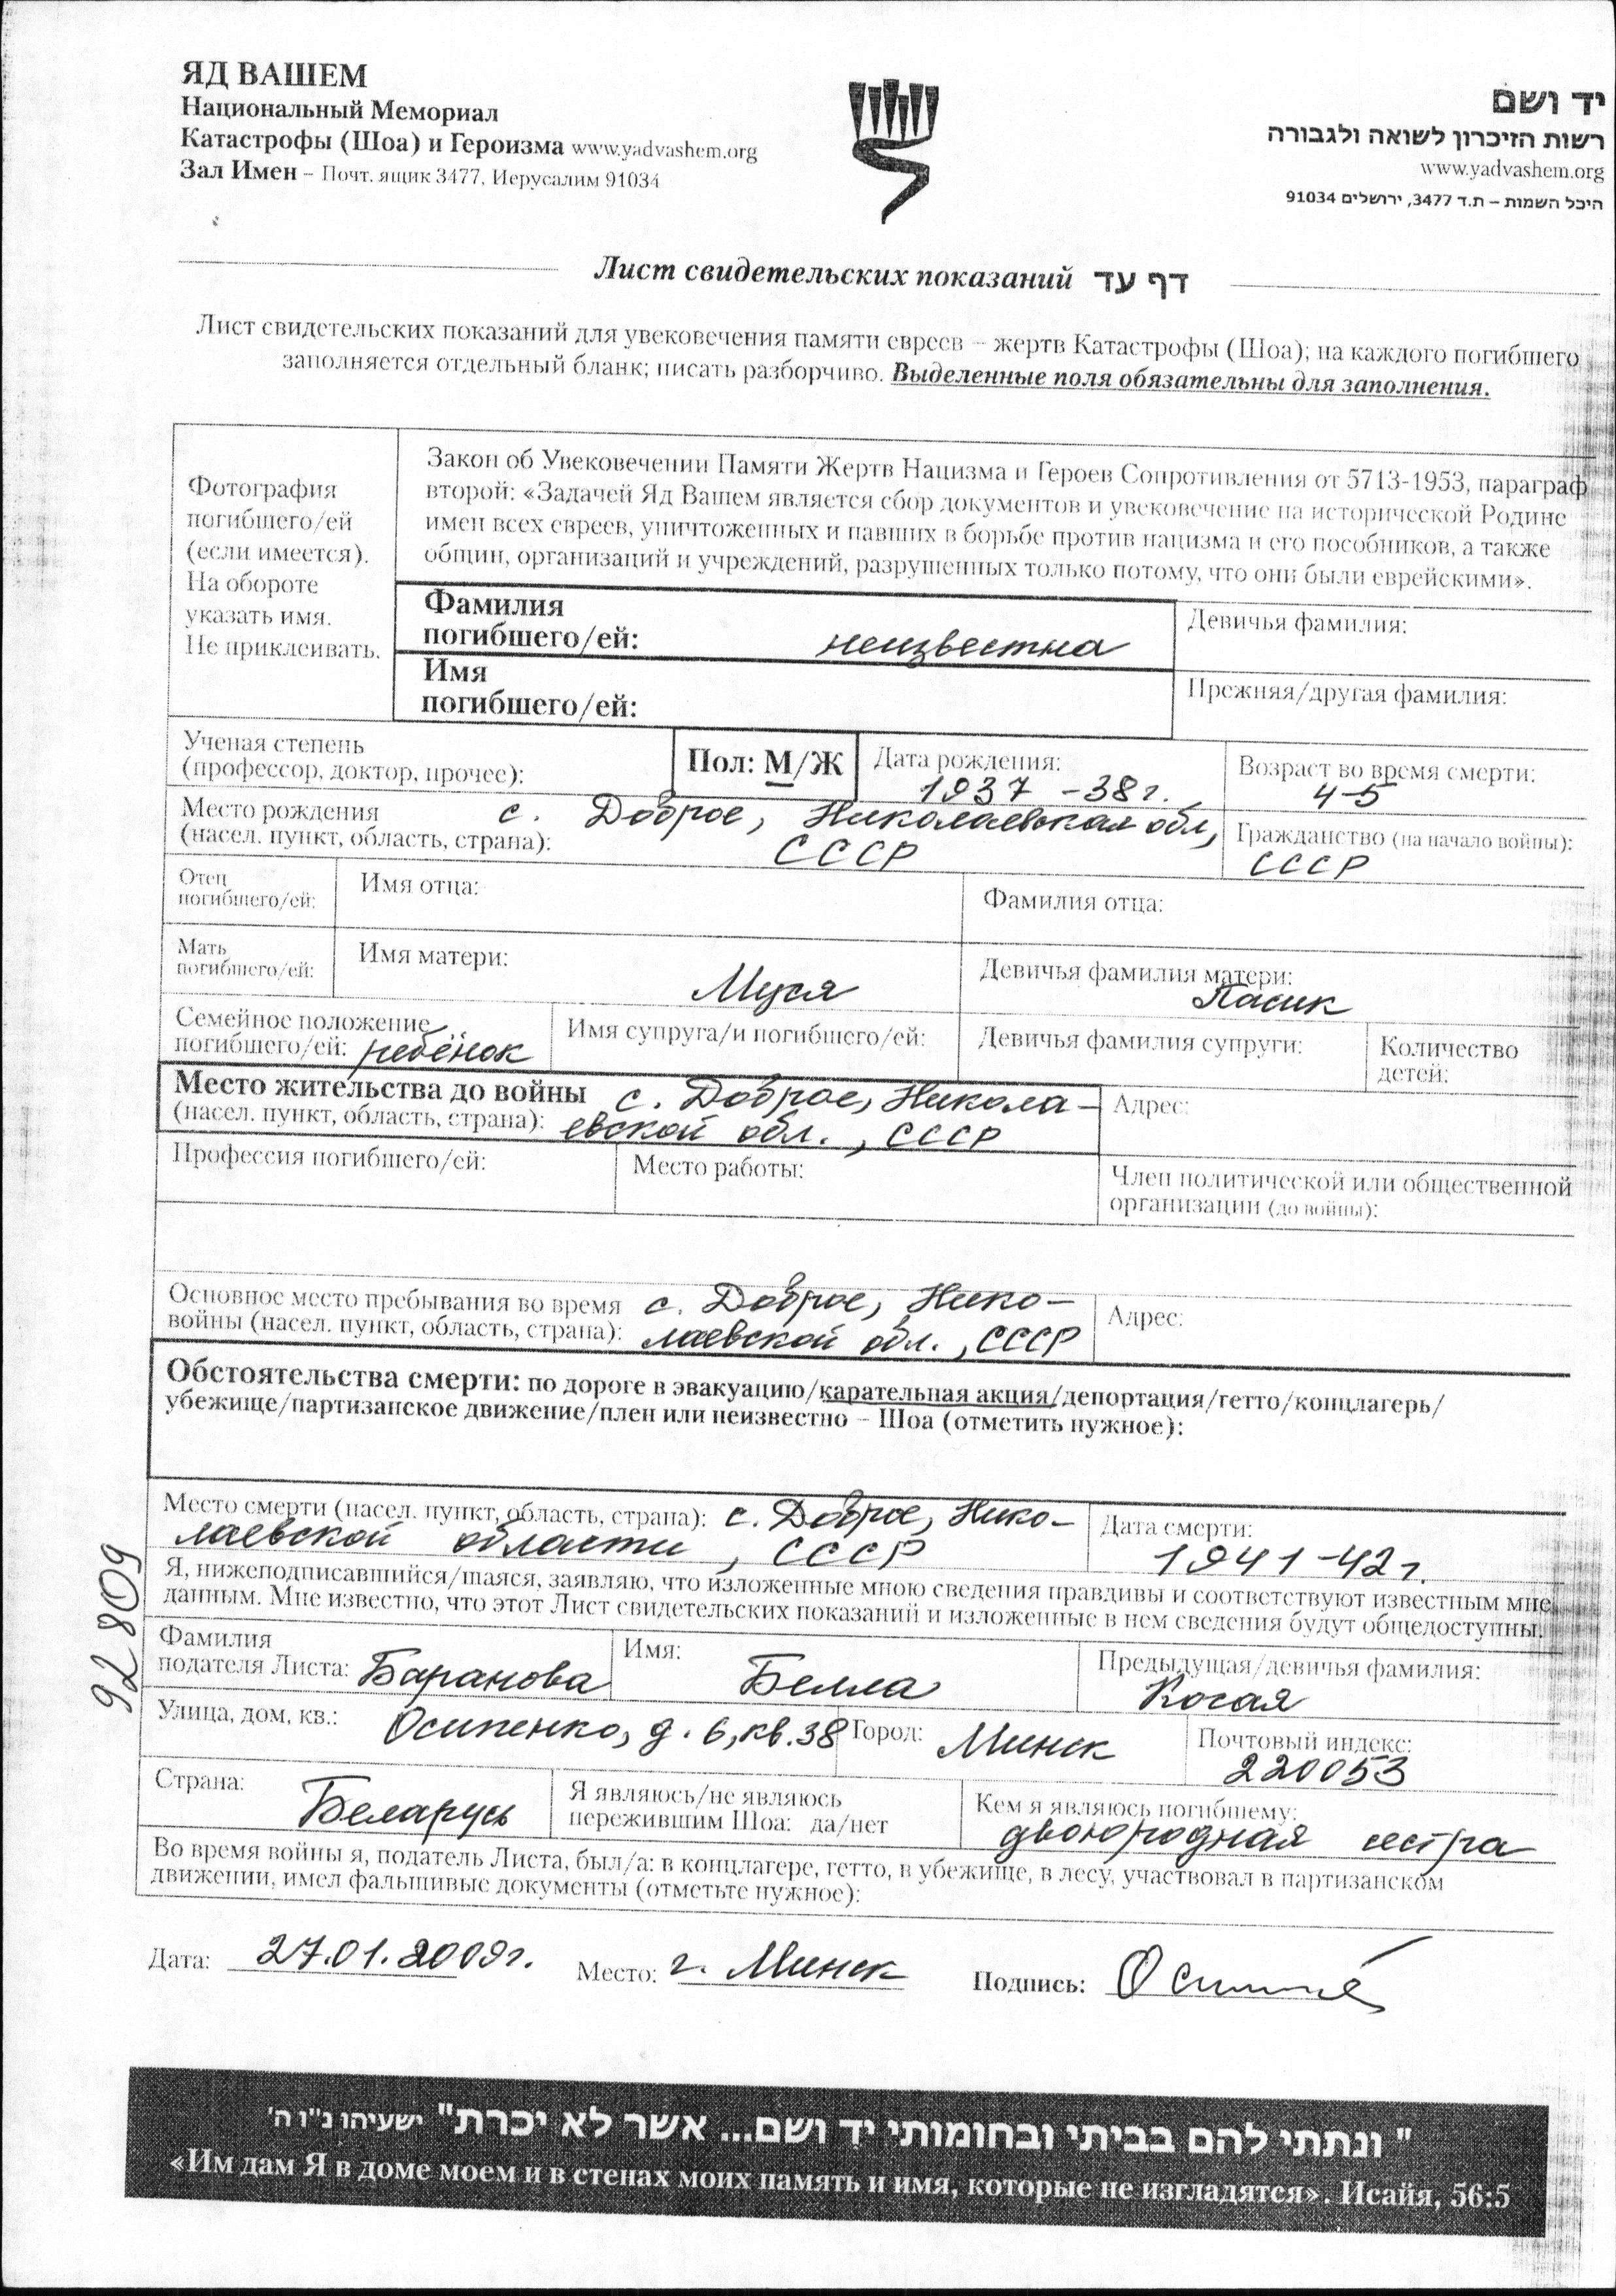 ЯД ВАШЕМ
Национальный Мемориал
Катастрофы (Шоа) и Героизма www.yadvashem.org
Зал Имен – Почт. ящик 3477, Иерусалим 91034
יד ושם
רשות הזיכרון לשואה ולגבורה
www.yadvashem.org
היכל השמות – ת.ד 3477, ירושלים 91034
Лист свидетельских показаний דף עד
Лист свидетельских показаний для увековечения памяти евреев – жертв Катастрофы (Шоа); на каждого погибшего
заполняется отдельный бланк; писать разборчиво. Выделенные поля обязательны для заполнения.
Фотография
погибшего/ей
(если имеется).
На обороте
указать имя.
Не приклеивать.
Закон об Увековечении Памяти Жертв Нацизма и Героев Сопротивления от 5713-1953, параграф
второй: «Задачей Яд Вашем является сбор документов и увековечение на исторической Родине
имен всех евреев, уничтоженных и павших в борьбе против нацизма и его пособников, а также
общин, организаций и учреждений, разрушенных только потому, что они были еврейскими».
Фамилия
погибшего/ей: неизвестна
Девичья фамилия:
Имя
погибшего/ей:
Прежняя/другая фамилия:
Ученая степень
(профессор, доктор, прочее):
Пол: М/Ж
Дата рождения:
1937 -38 г.
Возраст во время смерти:
4-5
Место рождения с. Доброе, Николаевская обл,
(насел. пункт, область, страна): СССР
Гражданство (на начало войны):
СССР
Отец
погибшего/ей:
Имя отца:
Фамилия отца:
Мать
погибшего/ей:
Имя матери:
Муся
Девичья фамилия матери:
Пасик
Семейное положение
погибшего/ей: ребёнок
Имя супруга/и погибшего/ей:
Девичья фамилия супруги:
Количество
детей:
Место жительства до войны с. Доброе, Никола-
(насел. пункт, область, страна): евской обл., СССР
Адрес:
Профессия погибшего/ей:
Место работы:
Член политической или общественной
организации (до войны):
Основное место пребывания во время с. Доброе, Нико-
войны (насел. пункт, область, страна): лаевской обл., СССР
Адрес:
Обстоятельства смерти: по дороге в эвакуацию/карательная акция/депортация/гетто/концлагерь/
убежище/партизанское движение/плен или неизвестно – Шоа (отметить нужное):
Место смерти (насел. пункт, область, страна): с. Доброе, Нико-
лаевской области, СССР
Дата смерти:
1941-42 г.
Я, нижеподписавшийся/шаяся, заявляю, что изложенные мною сведения правдивы и соответствуют известным мне
данным. Мне известно, что этот Лист свидетельских показаний и изложенные в нем сведения будут общедоступны.
92809
Фамилия
подателя Листа: Баранова
Имя:
Белла
Предыдущая/девичья фамилия:
Косая
Улица, дом, кв.: Осипенко, д. 6, кв. 38
Город: Минск
Почтовый индекс:
220053
Страна:
Беларусь
Я являюсь/не являюсь
пережившим Шоа: да/нет
Кем я являюсь погибшему:
двоюродная сестра
Во время войны я, податель Листа, был/а: в концлагере, гетто, в убежище, в лесу, участвовал в партизанском
движении, имел фальшивые документы (отметьте нужное):
Дата: 27.01.2009г. Место: г. Минск Подпись:
" ונתתי להם בביתי ובחומותי יד ושם... אשר לא יכרת" ישעיהו נ"ו ה'
«Им дам Я в доме моем и в стенах моих память и имя, которые не изгладятся». Исайя, 56:5